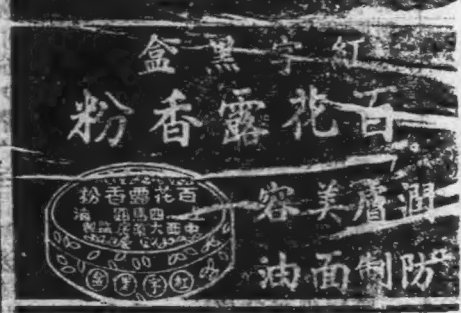 紅字黑盒
百花露香粉
潤膚美容
防制面油
百花露香粉
上四馬路海
中西大藥房監製
紅字黑盒